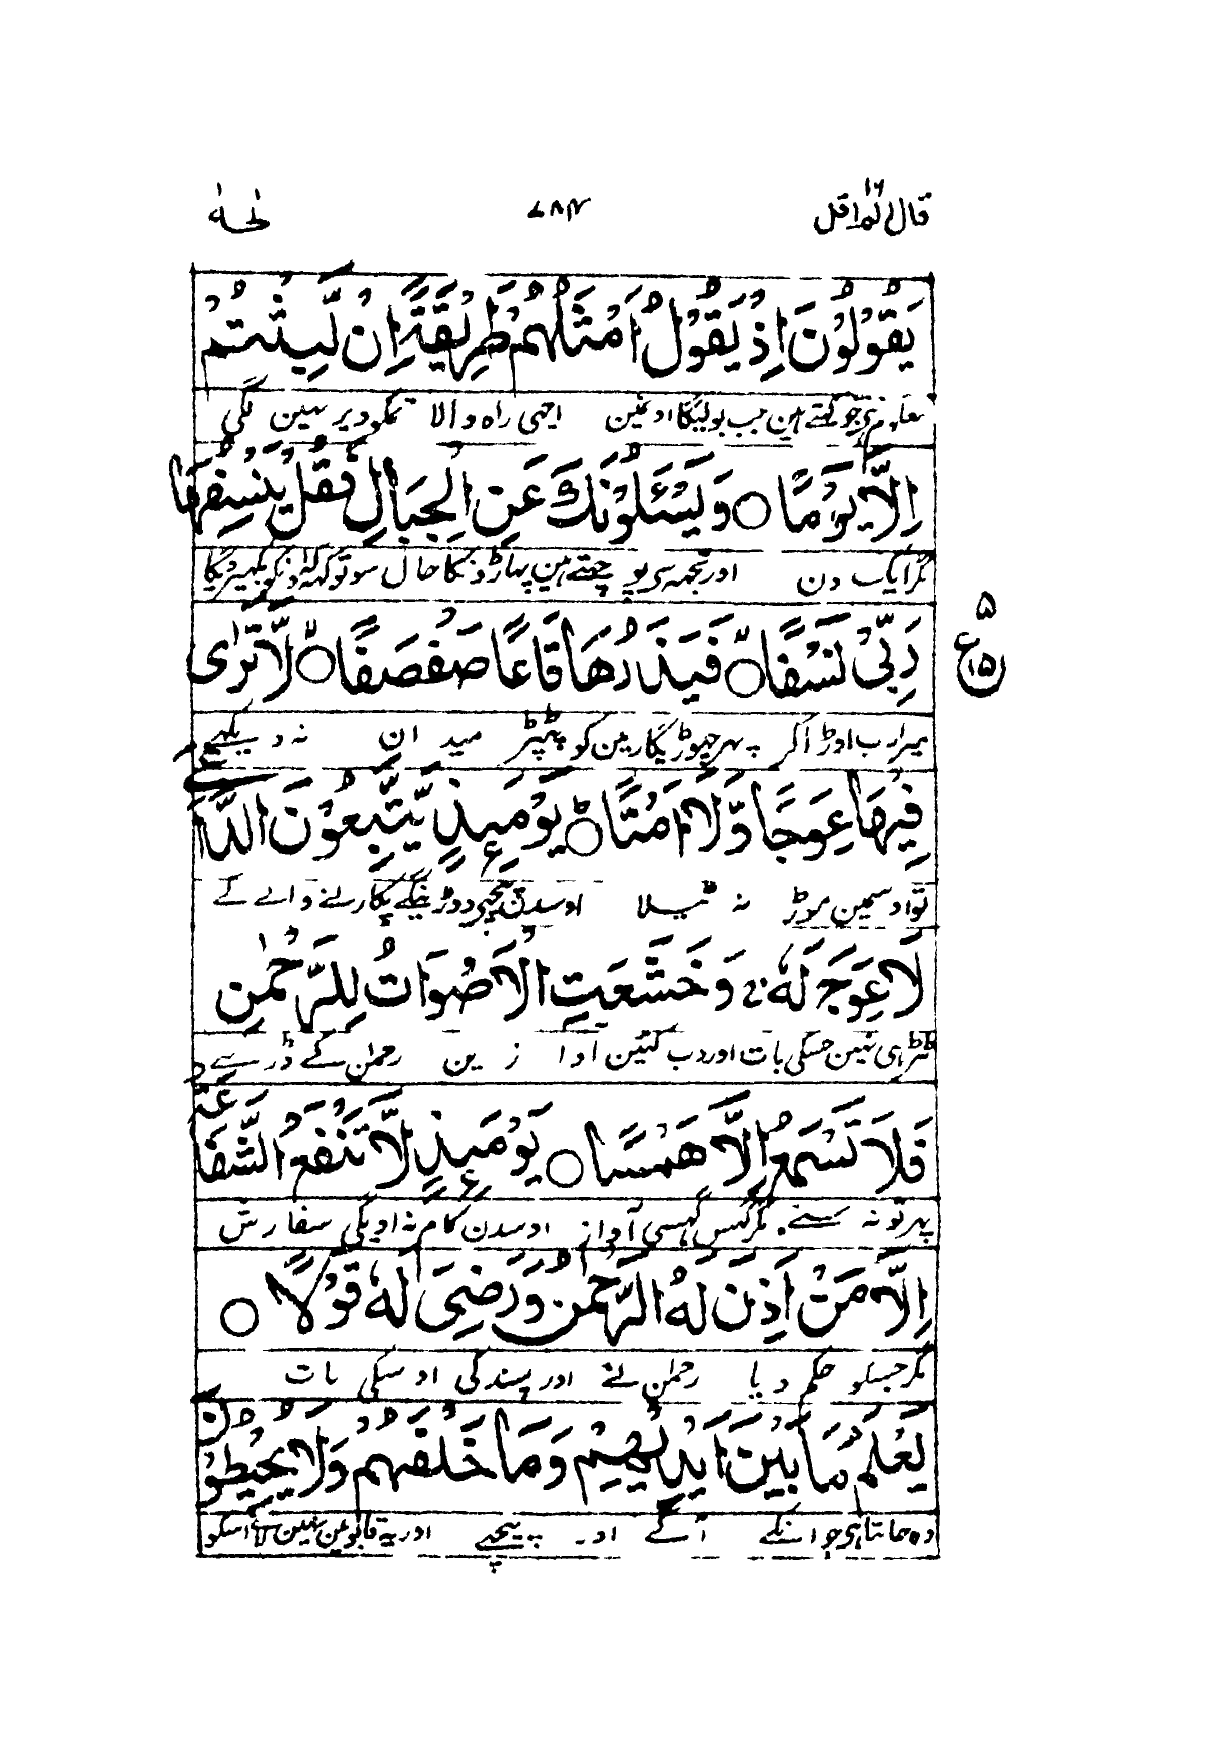 قال الم اقل ١٦
٤٨٧
طٰهٰ
يَقُوْلُوْنَ اِذْ يَقُوْلُ اَمْثَلُهُمْ طَرِيْقَةً اِنْ لَّبِثْتُمْ
جو کہتے ہین جب بولیگا اونمین اچھی راہ والا تمکو دیر نہین لگی
اِلَّا يَوْمًا ○ وَيَسْـَٔلُوْنَكَ عَنِ الْجِبَالِ فَقُلْ يَنْسِفُهَا
مگر ایک دن اور تجھہ سی پوچھتے ہین پہاڑونکا حال سو تو کہہ اونکو بکھیر دیگا
رَبِّيْ نَسْفًا ○ فَيَذَرُهَا قَاعًا صَفْصَفًا ○ لَّا تَرٰى
میرا رب اوڑا کر پہر چھوڑیگا زمین کو پٹپر میدان نہ دیکھے
٥
ع
١٥
فِيْهَا عِوَجًا وَّلَآ اَمْتًا ○ يَوْمَئِذٍ يَّتَّبِعُوْنَ الدَّاعِيَ
تو اوسمین موڑ نہ ٹیلا اوسدن پیچھے دوڑینگے پکارنے والے کے
لَا عِوَجَ لَهٗ وَخَشَعَتِ الْاَصْوَاتُ لِلرَّحْمٰنِ
ٹیڑہی نہین جسکی بات اور دب گئین آوازین رحمٰن کے ڈر سے
فَلَا تَسْمَعُ اِلَّا هَمْسًا ○ يَوْمَئِذٍ لَّا تَنْفَعُ الشَّفَاعَةُ
پہر تو نہ سنے مگر کھس کھسی آواز اوسدن کام نہ اویگی سفارش
اِلَّا مَنْ اَذِنَ لَهُ الرَّحْمٰنُ وَرَضِيَ لَهٗ قَوْلًا ○
مگر جسکو حکم دیا رحمٰن نے اور پسند کی اوسکی بات
يَعْلَمُ مَا بَيْنَ اَيْدِيْهِمْ وَمَا خَلْفَهُمْ وَلَا يُحِيْطُوْنَ
وہ جانتا ہی جو انکے آگے اور پیچھے اور یہ قابو مین نہین لاتے اسکو